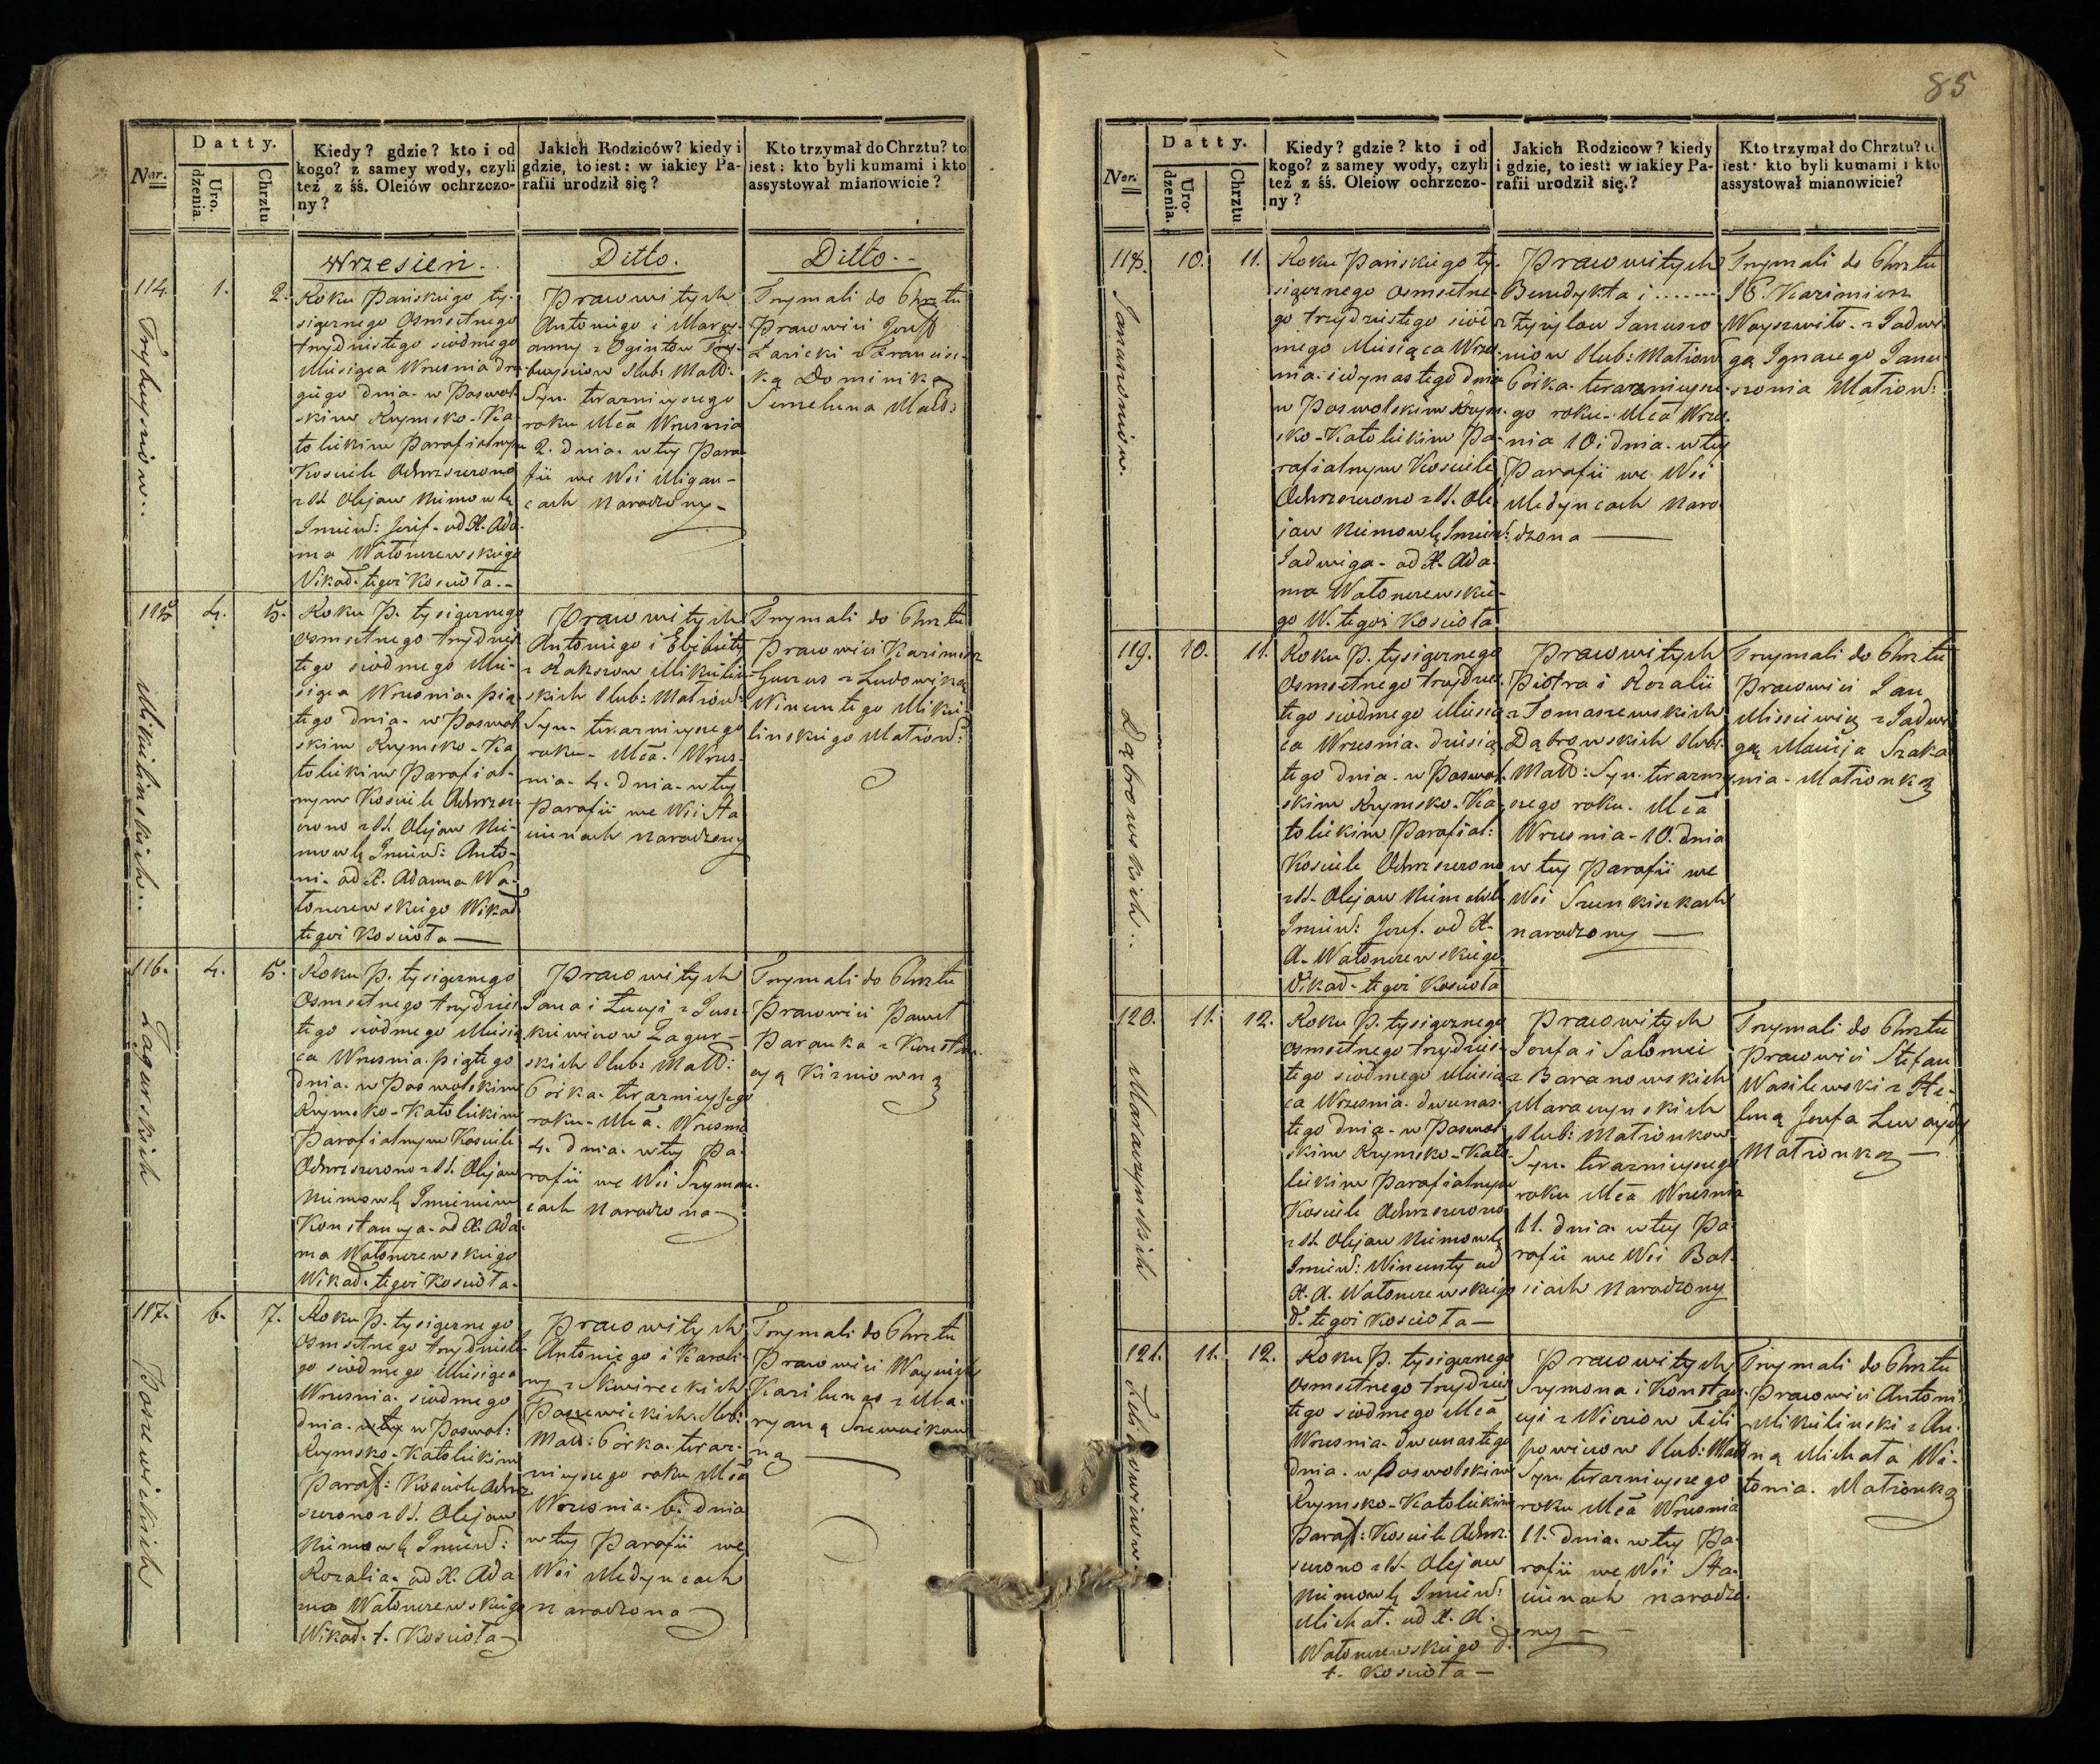 85
Datty.
Kiedy? gdzie? kto i od
kogo? z samey wody, czyli
też z śś. Oleiów ochrzczo-
ny?
Jakich Rodziców? kiedy i
gdzie, to iest: w iakiey Pa-
rafii urodził się?
Kto trzymał do Chrztu? to
iest: kto byli kumami i kto
assystował mianowicie?
Nar.
Uro.
dzenia.
Chrztu
Wrzesień.
Ditto.
Ditto.
114.
1.
2.
Roku Pańskiego ty-
siącznego Osmsetnego
trzydziestego siódmego
Miesiąca Wrzesnia dru
giego dnia w Poswol
skim Rzymsko-Ka
tolickim Parafialnym
Kosciele Ochrzczono
z SS. Olejow Niemowle
Imien: Jozef od X. Ada
ma Watonczewskiego
Wikad. tegoż Kosciola.
Prawowitych
Antoniego i Mary-
anny z Ogintow
Slub: Małż:
Syn. terazniejszego
roku Mca Wrzesnia
2. dnia w tey Para
fii we Wsi Migan-
cach Narodzony
Trzymali do Chrztu
Prawowici Jozeff
Laricki z Francisz-
ką Dominika
Małż:
115
4.
5.
Mikulinskich
Roku P. tysiącznego
osmsetnego trzydzies
tego siódmego Mie-
siąca Wrzesnia pią
tego dnia w Poswol
skim Rzymsko-Ka
tolickim Parafial-
nym Kosciele Ochrzcz
czono z SS. Olejow Nie-
mowlę Imien: Anto-
ni od X. Adama Wa-
tonczewskiego Wikad
tegoż Kosciola
Prawowitych
Antoniego i Elżbiety
Mikulin
skich Slub: Małżon:
Syn terazniejszego
roku Mca. Wrzes-
nia 4. dnia w tey
Parafii we Wsi Sta
cinach narodzony
Trzymali do Chrztu
Prawowici Kazimierz
z Ludowiką
Wincentego Miku-
linskiego Małżon:
116.
4.
5.
Zagurskich
Roku P. tysiącznego
Osmsetnego trzydzies
tego siódmego Miesią
ca Wrzesnia piątego
dnia w Poswolskim
Rzymsko-Katolickim
Parafialnym Kosciele
Ochrzczono z SS. Olejow
Niemowlę Imieniem
Konstancya od X. Ada
ma Watonczewskiego
Wikad. tegoż Kosciola
Prawowitych
Jana i Łucyi z Jusz-
kiewiczow Zagur-
skich Slub: Małż:
Córka terazniejszego
roku Mca. Wrzesnia
4. dnia w tey Pa
rafii we Wsi Szyman-
cach Narodzona
Trzymali do Chrztu
Prawowici Paweł
Baranka z Konstan
cyą Kizniowną
117.
6.
7.
Roku P. tysiącznego
osmsetnego trzydzieste
go siódmego Miesiąca
Wrzesnia siódmego
dnia w Poswol:
Rzymsko-Katolickim
Paraf: Kosciele Ochrz
czono z SS. Olejow
Niemowlę Imien:
Rozalia od X. Ada
ma Watonczewskiego
Wikad. t. Kosciola
Prawowitych
Antoniego i Karoli-
ny z Skwireckich
Slub:
Małż: Córka teraz-
niejszego roku Mca
Wrzesnia 6. dnia
w tey Parafii we
Wsi Medyncach
narodzona
Trzymali do Chrztu
Prawowici Woyciech
z Ma-
ryaną
ną
Datty.
Kiedy? gdzie? kto i od
kogo? z samey wody, czyli
też z śś. Oleiow ochrzczo-
ny?
Jakich Rodziców? kiedy
i gdzie, to iest: w iakiey Pa-
rafii urodził się.?
Kto trzymał do Chrztu? to
iest: kto byli kumami i kto
assystował mianowicie?
Ner.
Uro-
dzenia.
Chrztu
118.
10.
11.
Januszoniow.
Roku Pańskiego ty-
siącznego osmsetne-
go trzydziestego siód
mego Miesiąca Wrze
nia jedynastego dnia
w Poswolskim Rzym-
sko-Katolickim Pa-
rafialnym Kosciele
Ochrzczono z SS. Ole
jow Niemowlę Imien:
Jadwiga od X. Ada
ma Watonczewskie-
go W. tegoż Kosciola
Prawowitych
Benedykta i .......
Januszo
niow Slub: Małżon
Córka terazniejsze-
go roku Mca Wrzes-
nia 10. dnia w tey
Parafii we Wsi
Medyncach Naro-
dzona
Trzymali do Chrztu
Kazimierz
Woyszwiło z Jadwi
gą Ignacego Janu-
szonia Małżon:
119.
10.
11.
Dąbrowskich
Roku P. tysiącznego
osmsetnego trzydzies
tego siódmego Miesią
ca Wrzesnia dziesią
tego dnia w Poswol-
skim Rzymsko-Ka
tolickim Parafial:
Kosciele Ochrzczono
z SS. Olejow Niemowle
Imien: Jozef. od X.
A. Watonczewskiego
Wikad. tegoż Kosciola
Prawowitych
Piotra i Rozalii
z Tomaszewskich
Dąbrowskich Slub:
Małż: Syn terazniej
szego roku Mca
Wrzesnia 10. dnia
w tey Parafii we
Wsi Szunkiszkach
narodzony
Trzymali do Chrztu
Prawowici Jan
Missiewicz z Jadwi
gą Macieja Szaka
nia Małżonką
120.
11.
12.
Maraczynskich
Roku P. tysiącznego
osmsetnego trzydzies-
tego siódmego Miesią
ca Wrzesnia dwunas-
tego dnia w Poswol
skim Rzymsko-Kato
lickim Parafialnym
Kosciele Ochrzczono
z SS. Olejow Niemowlę
Imien: Wincenty od
X. A. Watonczewskiego
tegoż Kosciola
Prawowitych
Jozefa i Salomei
z Baranowskich
Maraczynskich
Slub: Małżonkow
Syn terazniejszego
roku Mca Wrzesnia
11. dnia w tey Pa
rafii we Wsi Bal-
siach Narodzony
Trzymali do Chrztu
Prawowici Stefan
Wasilewski z He-
leną Jozefa
Małżonką
121.
11.
12.
Roku P. tysiącznego
osmsetnego trzydzies
tego siódmego Mca
Wrzesnia dwunastego
dnia w Poswolskim
Rzymsko-Katolickim
Paraf: Kosciele Ochrz-
czono z SS. Olejow
Niemowlę Imien:
Michał. od X. A.
Watonczewskiego
t. Kosciola
Prawowitych
Szymona i Konstan-
cyi z Wiciow Fili
powiczow Slub: Małż
Syn terazniejszego
roku Mca Wrzesnia
11. dnia w tey Pa-
rafii we Wsi Sta-
cinach narodzo
ny
Trzymali do Chrztu
Prawowici Antoni
Mikulinski z An-
ną Michała Wi-
tonia Małżonką